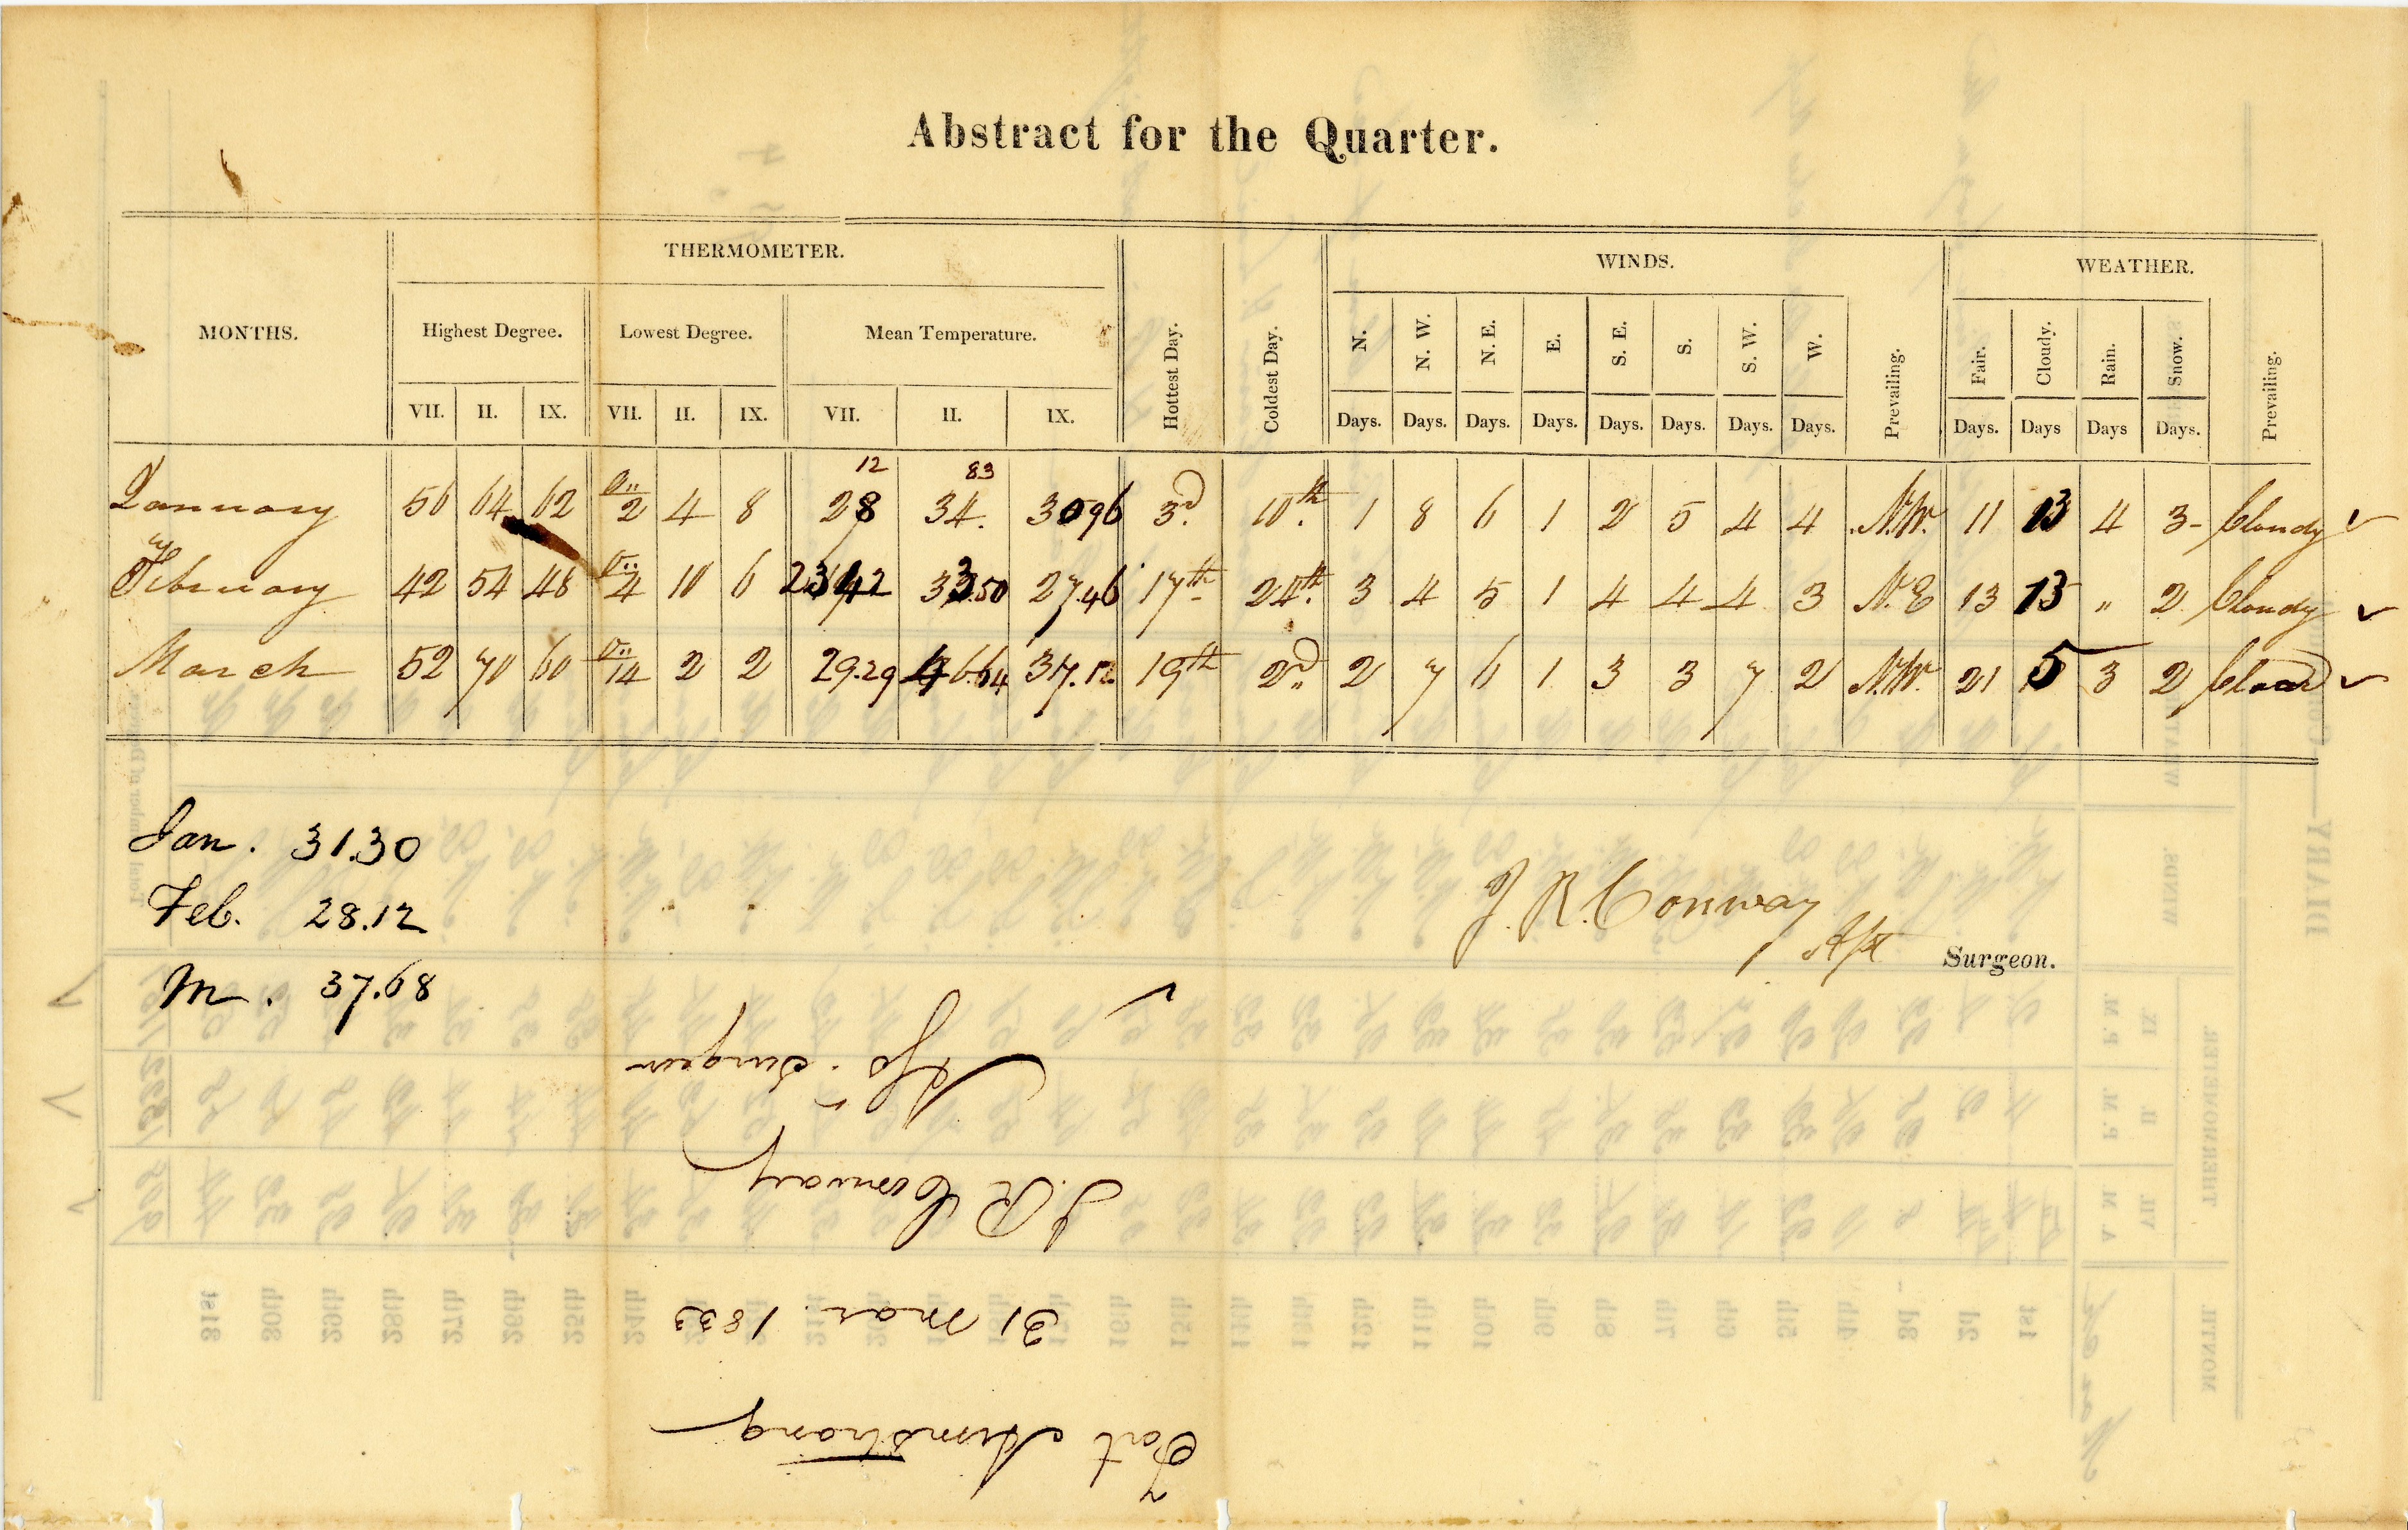 Abstract for the Quarter.
MONTHS. THERMOMETER. Hottest Day. Coldest Day. WINDS. WEATHER.
Highest Degree. Lowest Degree. Mean Temperature. N. N. W. N. E. E. S. E. S. S. W. W. Prevailing. Fair. Cloudy. Rain. Snow. Prevailing.
VII. II. IX. VII. II. IX. VII. II. IX. Days. Days. Days. Days. Days. Days. Days. Days. Days. Days Days Days.
12 83
January 56 64 62 0.. 2 4 8 28 34. 3096 3d. 10th. 1 8 6 1 2 5 4 4 N.W. 11 13 4 3- Cloudy ✓
February 42 54 48 0.. 4 10 6 33.50 27.46 17th 24th. 3 4 5 1 4 4 4 3 N.E 13 13 " 2 Cloudy ✓
March 52 70 60 0.. 14 2 2 29.29 46.64 37.12 19th 2d 2 7 6 1 3 3 7 2 N.W. 21 5 3 2 ✓
Jan. 31.30
Feb. 28.12
M. 37.68
J. R. Conway
Ast Surgeon.
Fort Armstrong
31 Mar. 1833
J. R. Conway
Ast. Surgeon